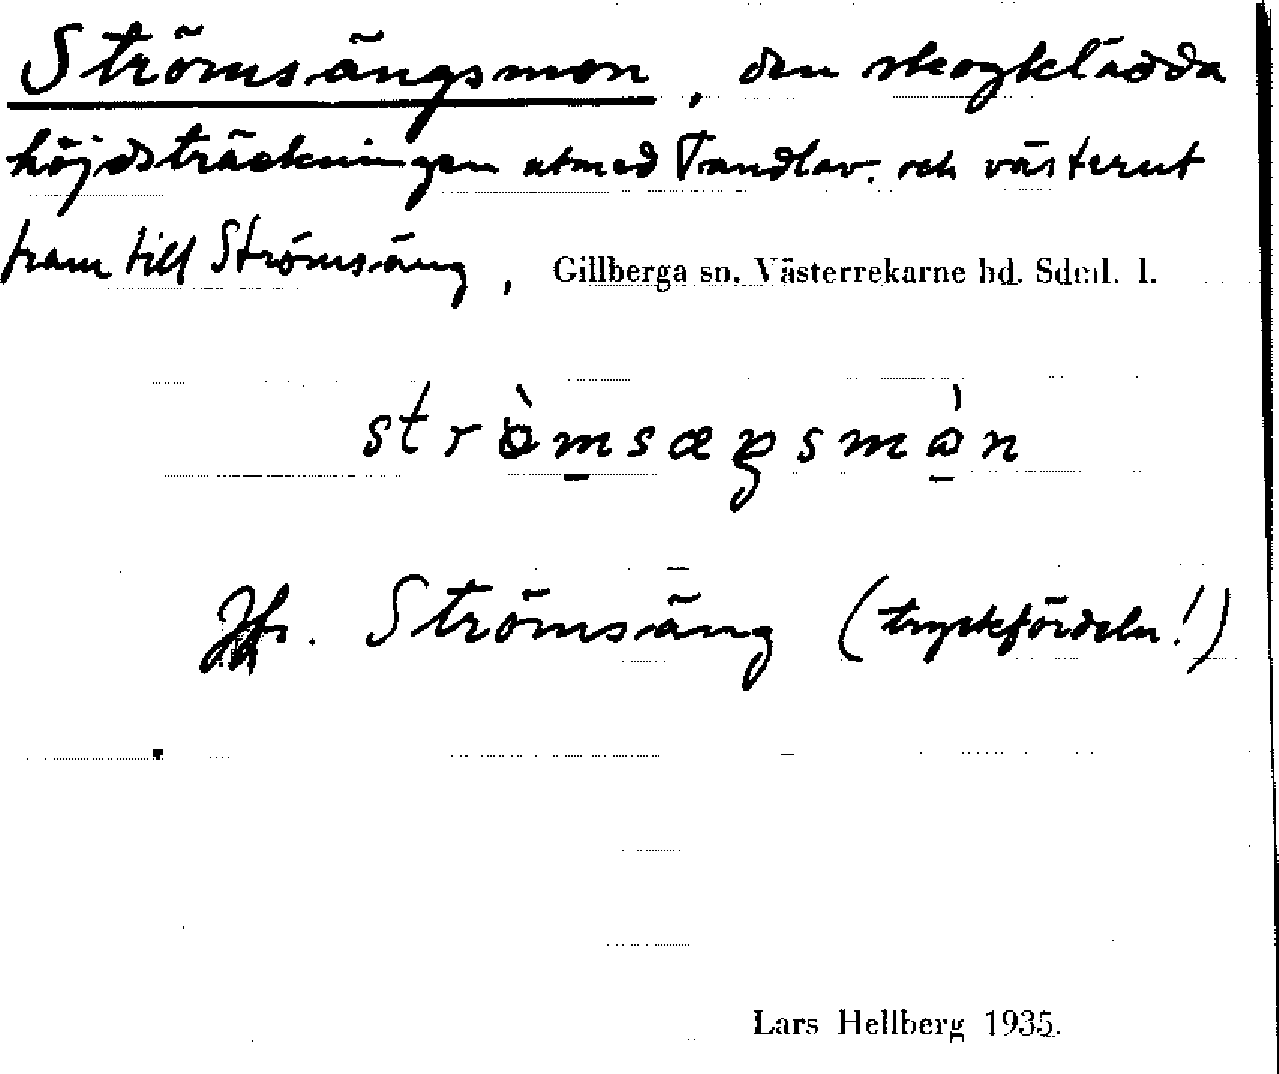 Strömsängsmon, den skogklädda
höjdsträckningen utmed Tandlav. och västerut
fram till Strömsäng, Gillberga sn. Västerrekarne hd. Sdml. l.
strò̀msæŋsmòn
Jfr. Strömsäng (tryckfördeln!)
Lars Hellberg 1935.